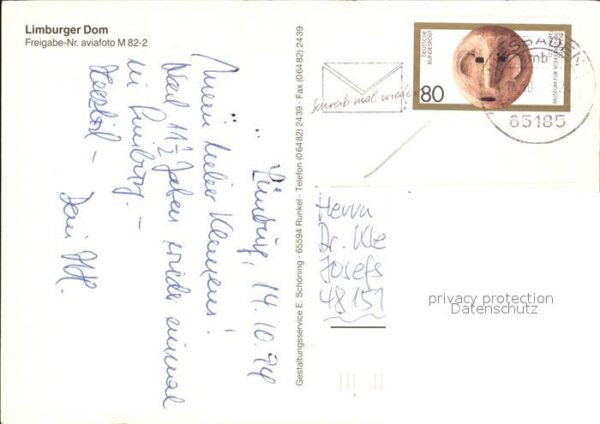 Limburger Dom
Freigabe-Nr. aviafoto M 82-2
Limburg, 14.10.94
Mein lieber Klemens!
Nach 11½ Jahren wieder einmal
in Limburg. –
Herzlich –
Dein
Gestaltungsservice E. Schöning · 65594 Runkel · Telefon (06482) 2439 · Fax (06482) 2439
DEUTSCHE
BUNDESPOST
80
MUSEUM FÜR
Schreib mal wieder
65185
Herrn
Dr. Kle
Josefs
48151
privacy protection
Datenschutz